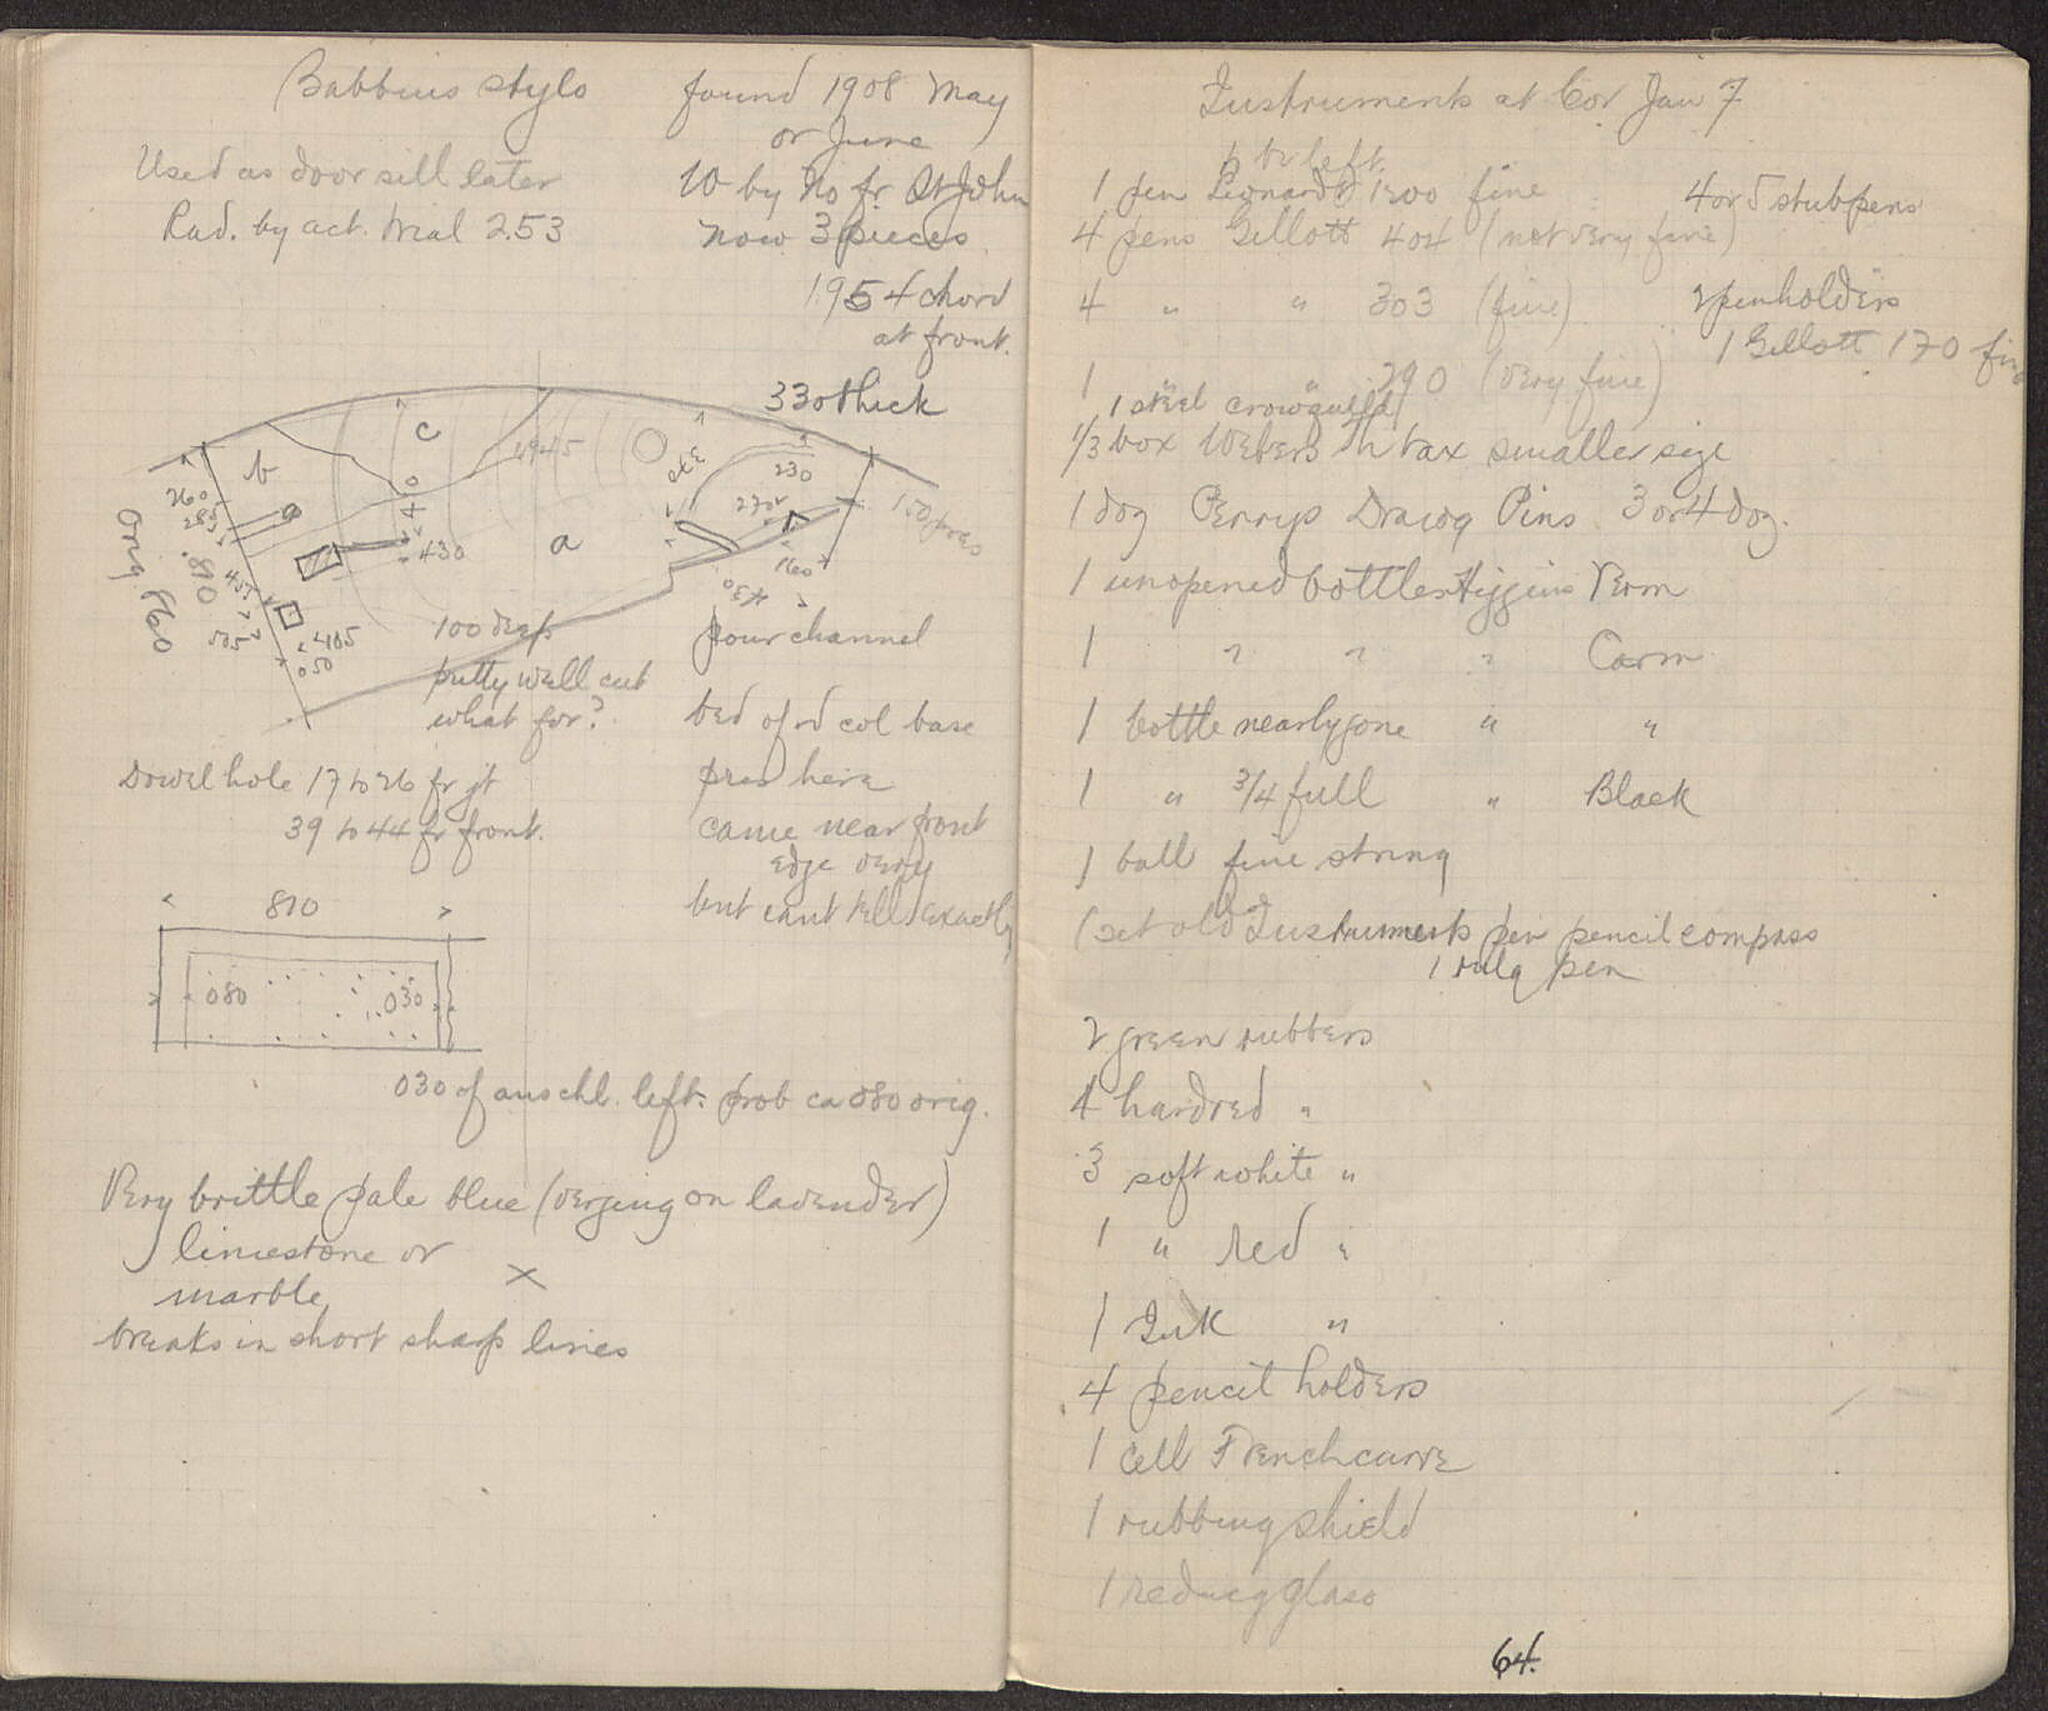 Babbius stylo
found 1908 May
or June
Used as door sill later
W by No fr. St John
Rad. by act. trial 2.53
now 3 pieces
1.954 chord
at front.
330 thick
c
b
a
1945
340
230
270
150 pres
260
285
a
430
160
430
Orig 860
.810
455
505
405
050
100 deep
putty well cut
what for?
pour channel
bed of rd col base
pres here
came near front
edge very
but cant tell exactly
Dowel hole 17 to 26 fr jt
39 to 44 fr front.
810
080
030
030 of anschl. left. prob ca 080 orig.
Very brittle pale blue (verging on lavender)
limestone or
marble
x
breaks in short sharp lines
Instruments at Cor Jan 7
to be left.
1 pen Leonardt 1300 fine
4 or 5 stub pens
4 pens Gillott 404 (not very fine)
4 " " 303 (fine)
2 penholders
1 Gillott 170 fine
1 " " 290 (very fine)
1 steel crowquill
1/3 box Webers Th tax smaller size
1 doz Perrys Drawg Pins 3 or 4 doz.
1 unopened bottle Higgins Verm
1 " " " Carm
1 bottle nearly gone " "
1 " 3/4 full " Black
1 ball fine string
1 set old Instruments pen pencil compass
1 rulg pen
2 green rubbers
4 hard red "
3 soft white "
1 " red "
1 Ink "
4 pencil holders
1 cell French curve
1 rubbing shield
1 reducg glass
64.